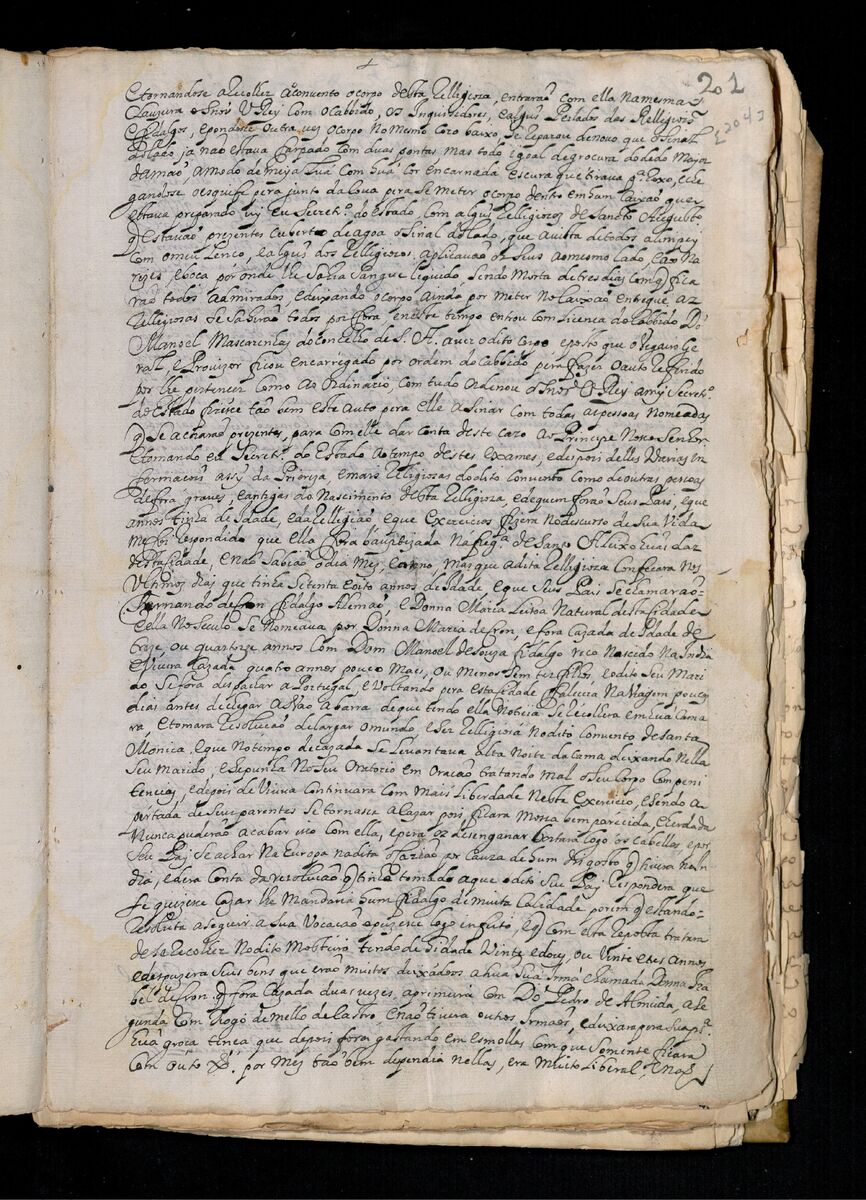 201
2043
E tornandose a Recolher ao Convento o corpo desta Relligioza, entrarão com ella na mesma
Clauzura o snor V Rey com o Cabbido, os Inquisidores, e algũs Perlados das Relligioẽs
e fidalgos, e pondose outra vez o corpo no mesmo Coro baixo, se reparou de novo que o sinal
do lado, ja não estava farpado com duas pontas mas todo igoal de grocura do dedo mayor
da mão, a modo de meya Lua com huã cor encarnada escura que tirava pª Roxo, e che
gandose o esquife pera junto da Cova pera se meter o corpo dentro em hum Caixão que
estava preparado vy eu Secretrº do Estado, com algũs Relligiozos de Sancto Augusto
q estavão prezentes cuberto de agoa o sinal do lado, que a vista de todos alimpey
com o meu Lenço, e algũs dos Relligiozos aplicavão os seus ao mesmo lado, e aos Na
rizes, e boca por onde lhe sahia sangue liquido, sendo morta de tres dias com q fica
rão todos admirados, e deixando o corpo ainda por meter no Caixão entregue as
Relligiozas se sahirão todos pera fora e neste tempo entrou com licença do Cabbido Dõ
Manoel Mascarenhas do Conselho de S. A. a ver o dito corpo e posto que o Vegario Ge
rall, e Provizor ficou encarregado por ordem do Cabbido pera fazer o auto Referido
por lhe pertencer como ao Ordinario, com tudo ordenou o snor V Rey a my Secretrº
de Estado fizese tão bem este auto pera elle asinar com todas as pessoas nomeadas
q se acharão prezentes, para com elle dar conta deste cazo ao Principe Nosso Senhor
E tomando eu Secretrº do Estado ao tempo destes exames, e despois delles varias in
formacoiis assy da Prioreza, e mais Relligiozas do dito Convento como de outras pessoas
de fora graves, e antigas do Nascimento desta Relligioza, e de quem forão seus Pais, e que
annos tinha de Idade, e da Relligião e que exercicios fizera no descurso de sua vida
me foi respondido que ella fora bauptizada na freg.ª de Santo Aleixo huã das
desta sidade, e não sabião o dia mes, e anno mas que a dita Relligioza confeçara nos
Vltimos dias que tinha setenta e oito annos de Idade, e que seus Pais se chamarão
Fernando de fron fidalgo Alemão, e Donna Maria Leitoa natural desta sidade
e ella no seculo se nomeava por Donna Maria de fron, e fora cazada de Idade de
treze, ou quatorze annos com Dom Manoel de Souza fidalgo reco nascido na India
e vivera cazada quatro annos pouco mais, ou menos sem ter filhos, e o dito seu mari
do se fora despachar a Portugal, e voltando pera esta sidade falecera na viagem poucos
dias antes de chegar a não a barra de que tendo ella noticia se recolhera em huã Cama
ra, e tomara Resolução de largar o mundo, e ser Relligioza no dito Convento de Santa
Monica. e que no tempo de cazada se levantava alta noite da cama deixando nella
seu marido, e se punha no seu Oratorio em oração tratando mal o seu corpo com peni
tencias, e depois de viuva continuara com mais liberdade neste exercicio, e sendo a
pertada de seus parentes se tornasse a cazar pois ficara mossa bem parecida, e herdada
nunca puderão acabar isto com ella, e pera os desenganar cortara logo os cabellos, e por
seu Pay se achar na Europa na dita ocazião por cauza de hum desgosto q tivera na In
dia, e dera conta da rezolução q tinha tomado a que o dito seu Pay respondera que
se quizese cazar lhe mandaria hum fidalgo de muita calidade porem q estando
resoluta a seguir a sua vocação o puzese logo em feito, e q com esta reposta tratara
de se recolher no dito Mosteiro tendo de Idade vinte e dous, ou vinte e tres annos
e despuzera seus bens que erão muitos deixados a huã sua Irmã chamada Donna Iza
bel de fron q fora cazada duas vezes, a primeira com Dõ Pedro de Almeida, a se
gunda com Diogo de Mello de Castro e não tivera outros Irmãos, e deixara pera sua pª.
huã groça tença que depois fora gastando em esmollas com que somente ficara
com outo xs. por mes tão bem dependia nellas, era muito liberal, e não